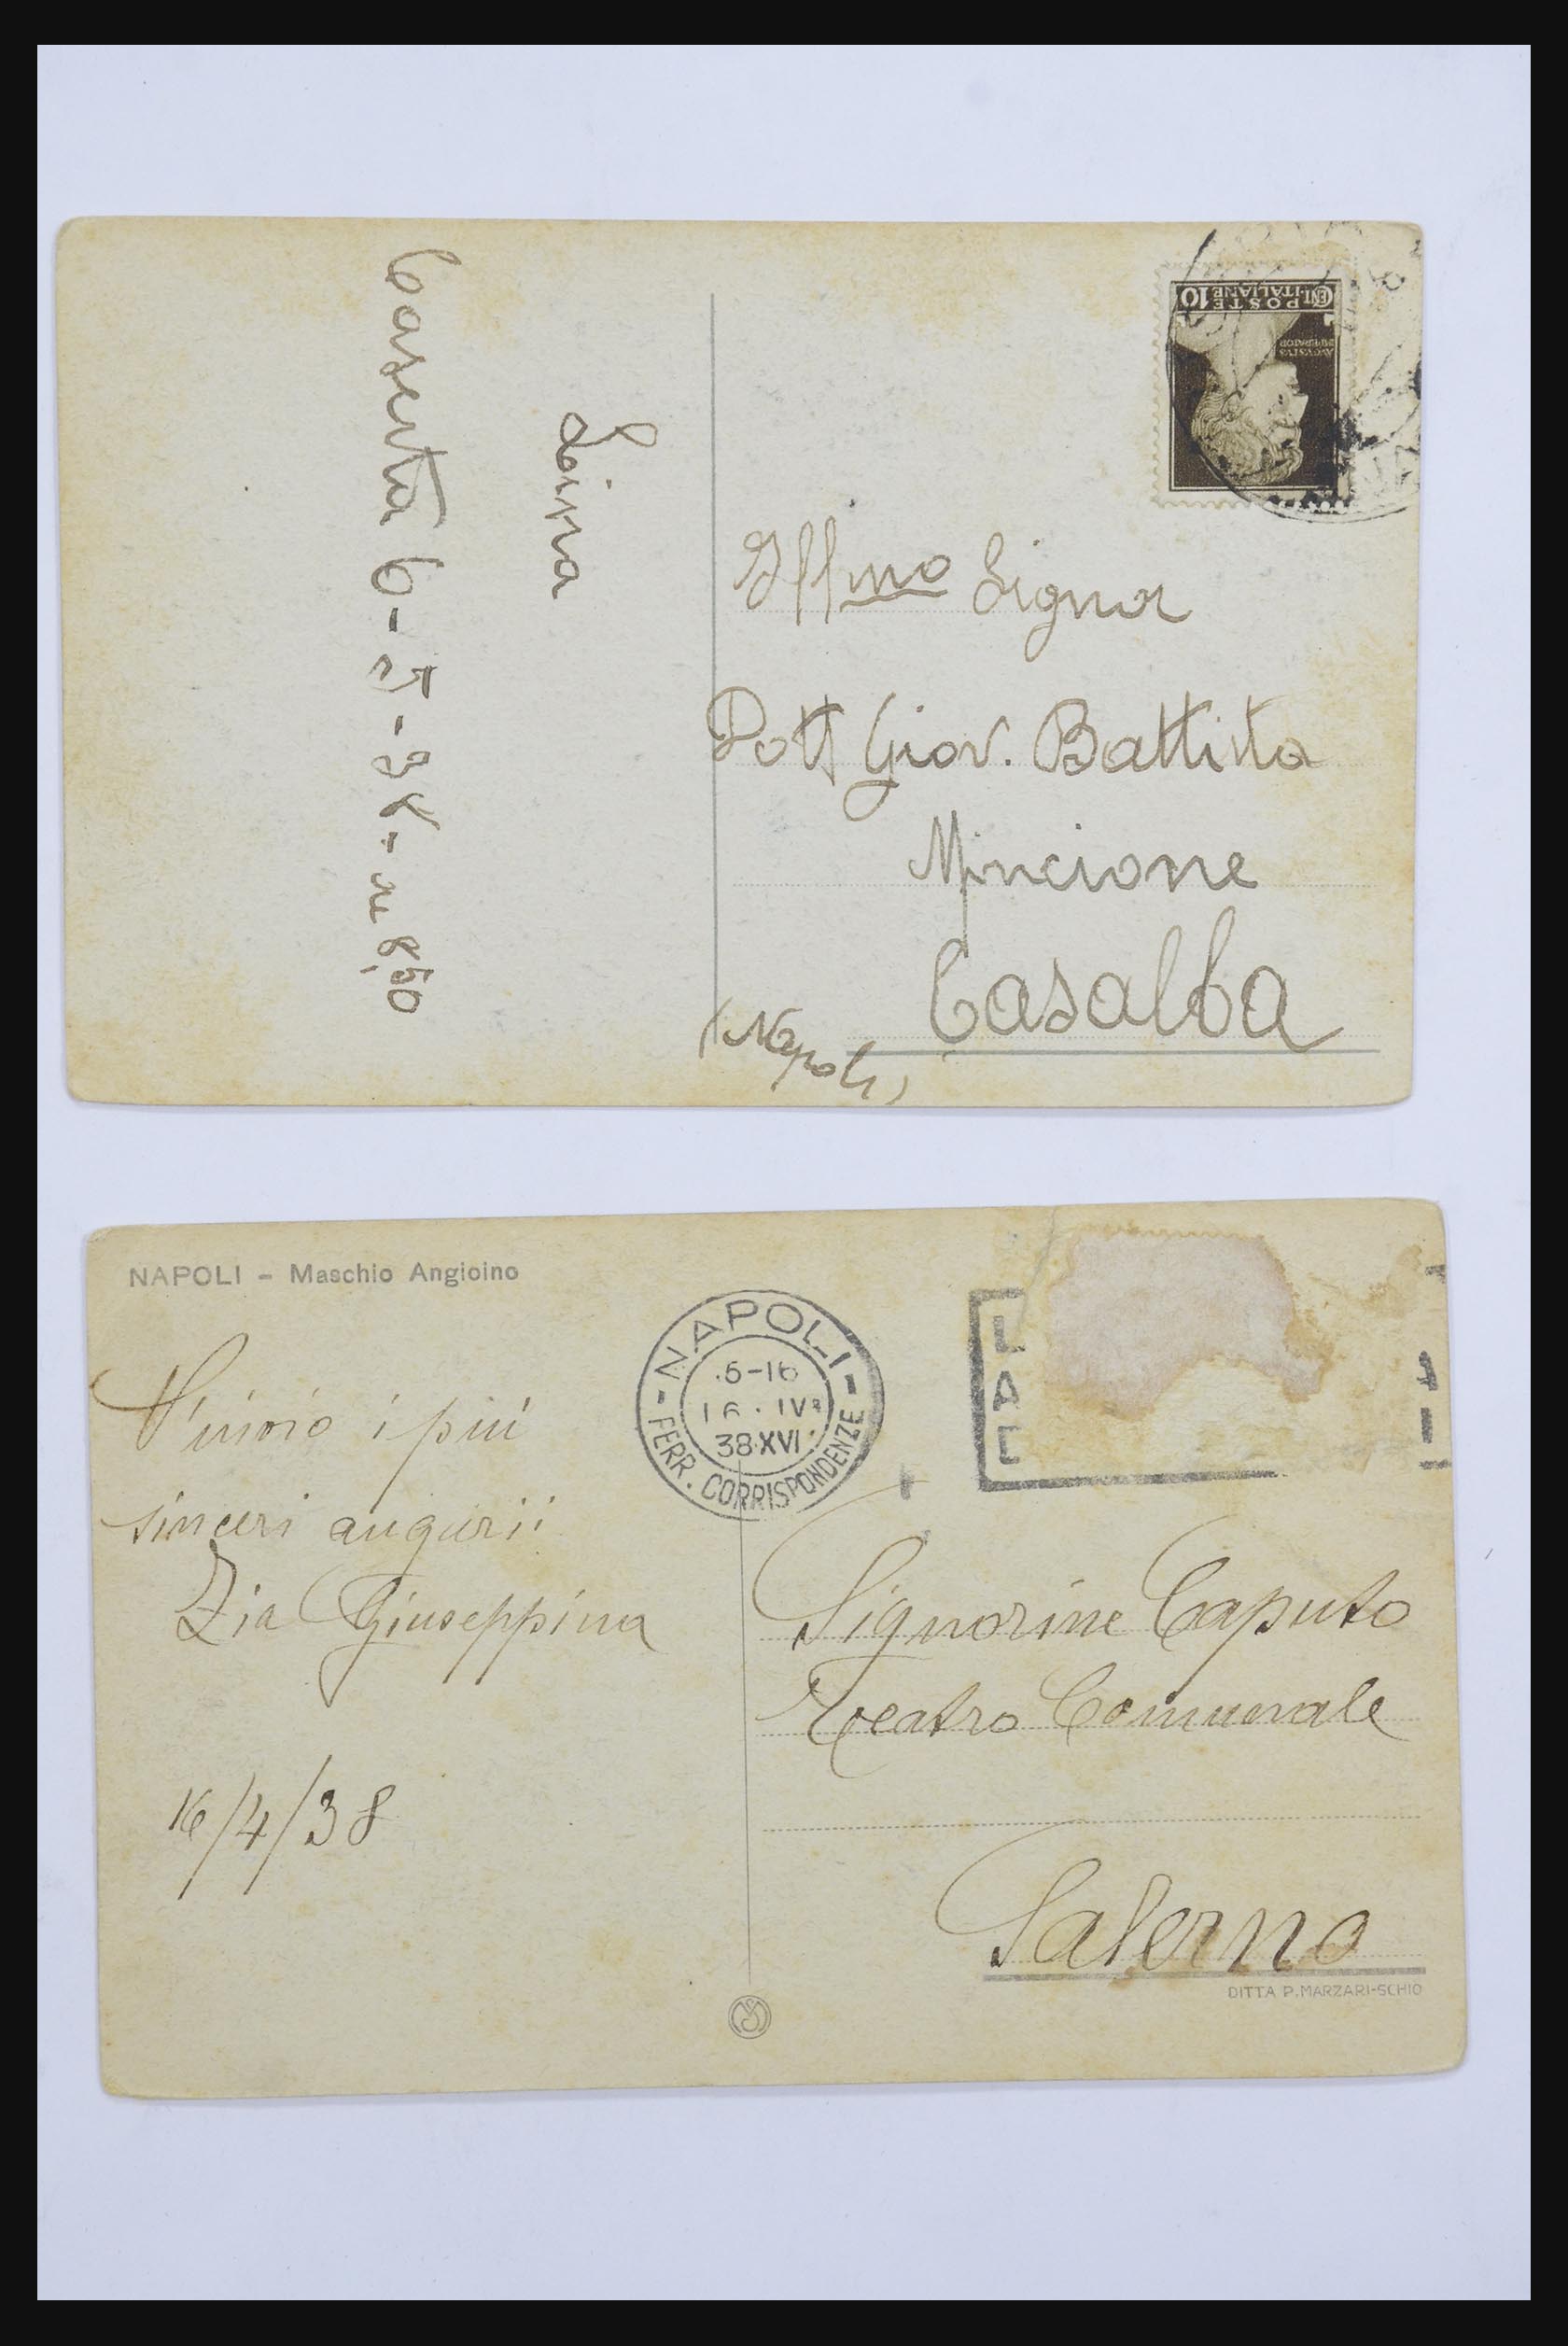 Caserta 6-5-38- ore 8,50
Lina
CENT. 10
POSTE
ITALIANE
Ill mo Signor
Dott Giov. Battista
Mincione
Casalba
(Napoli)
NAPOLI - Maschio Angioino
V'invio i più
sinceri augurii
Zia Giuseppina
16/4/38
NAPOLI
16. IV
38.XVI
FERR. CORRISPONDENZE
Signorine Caputo
Teatro Comunale
Salerno
DITTA P. MARZARI-SCHIO